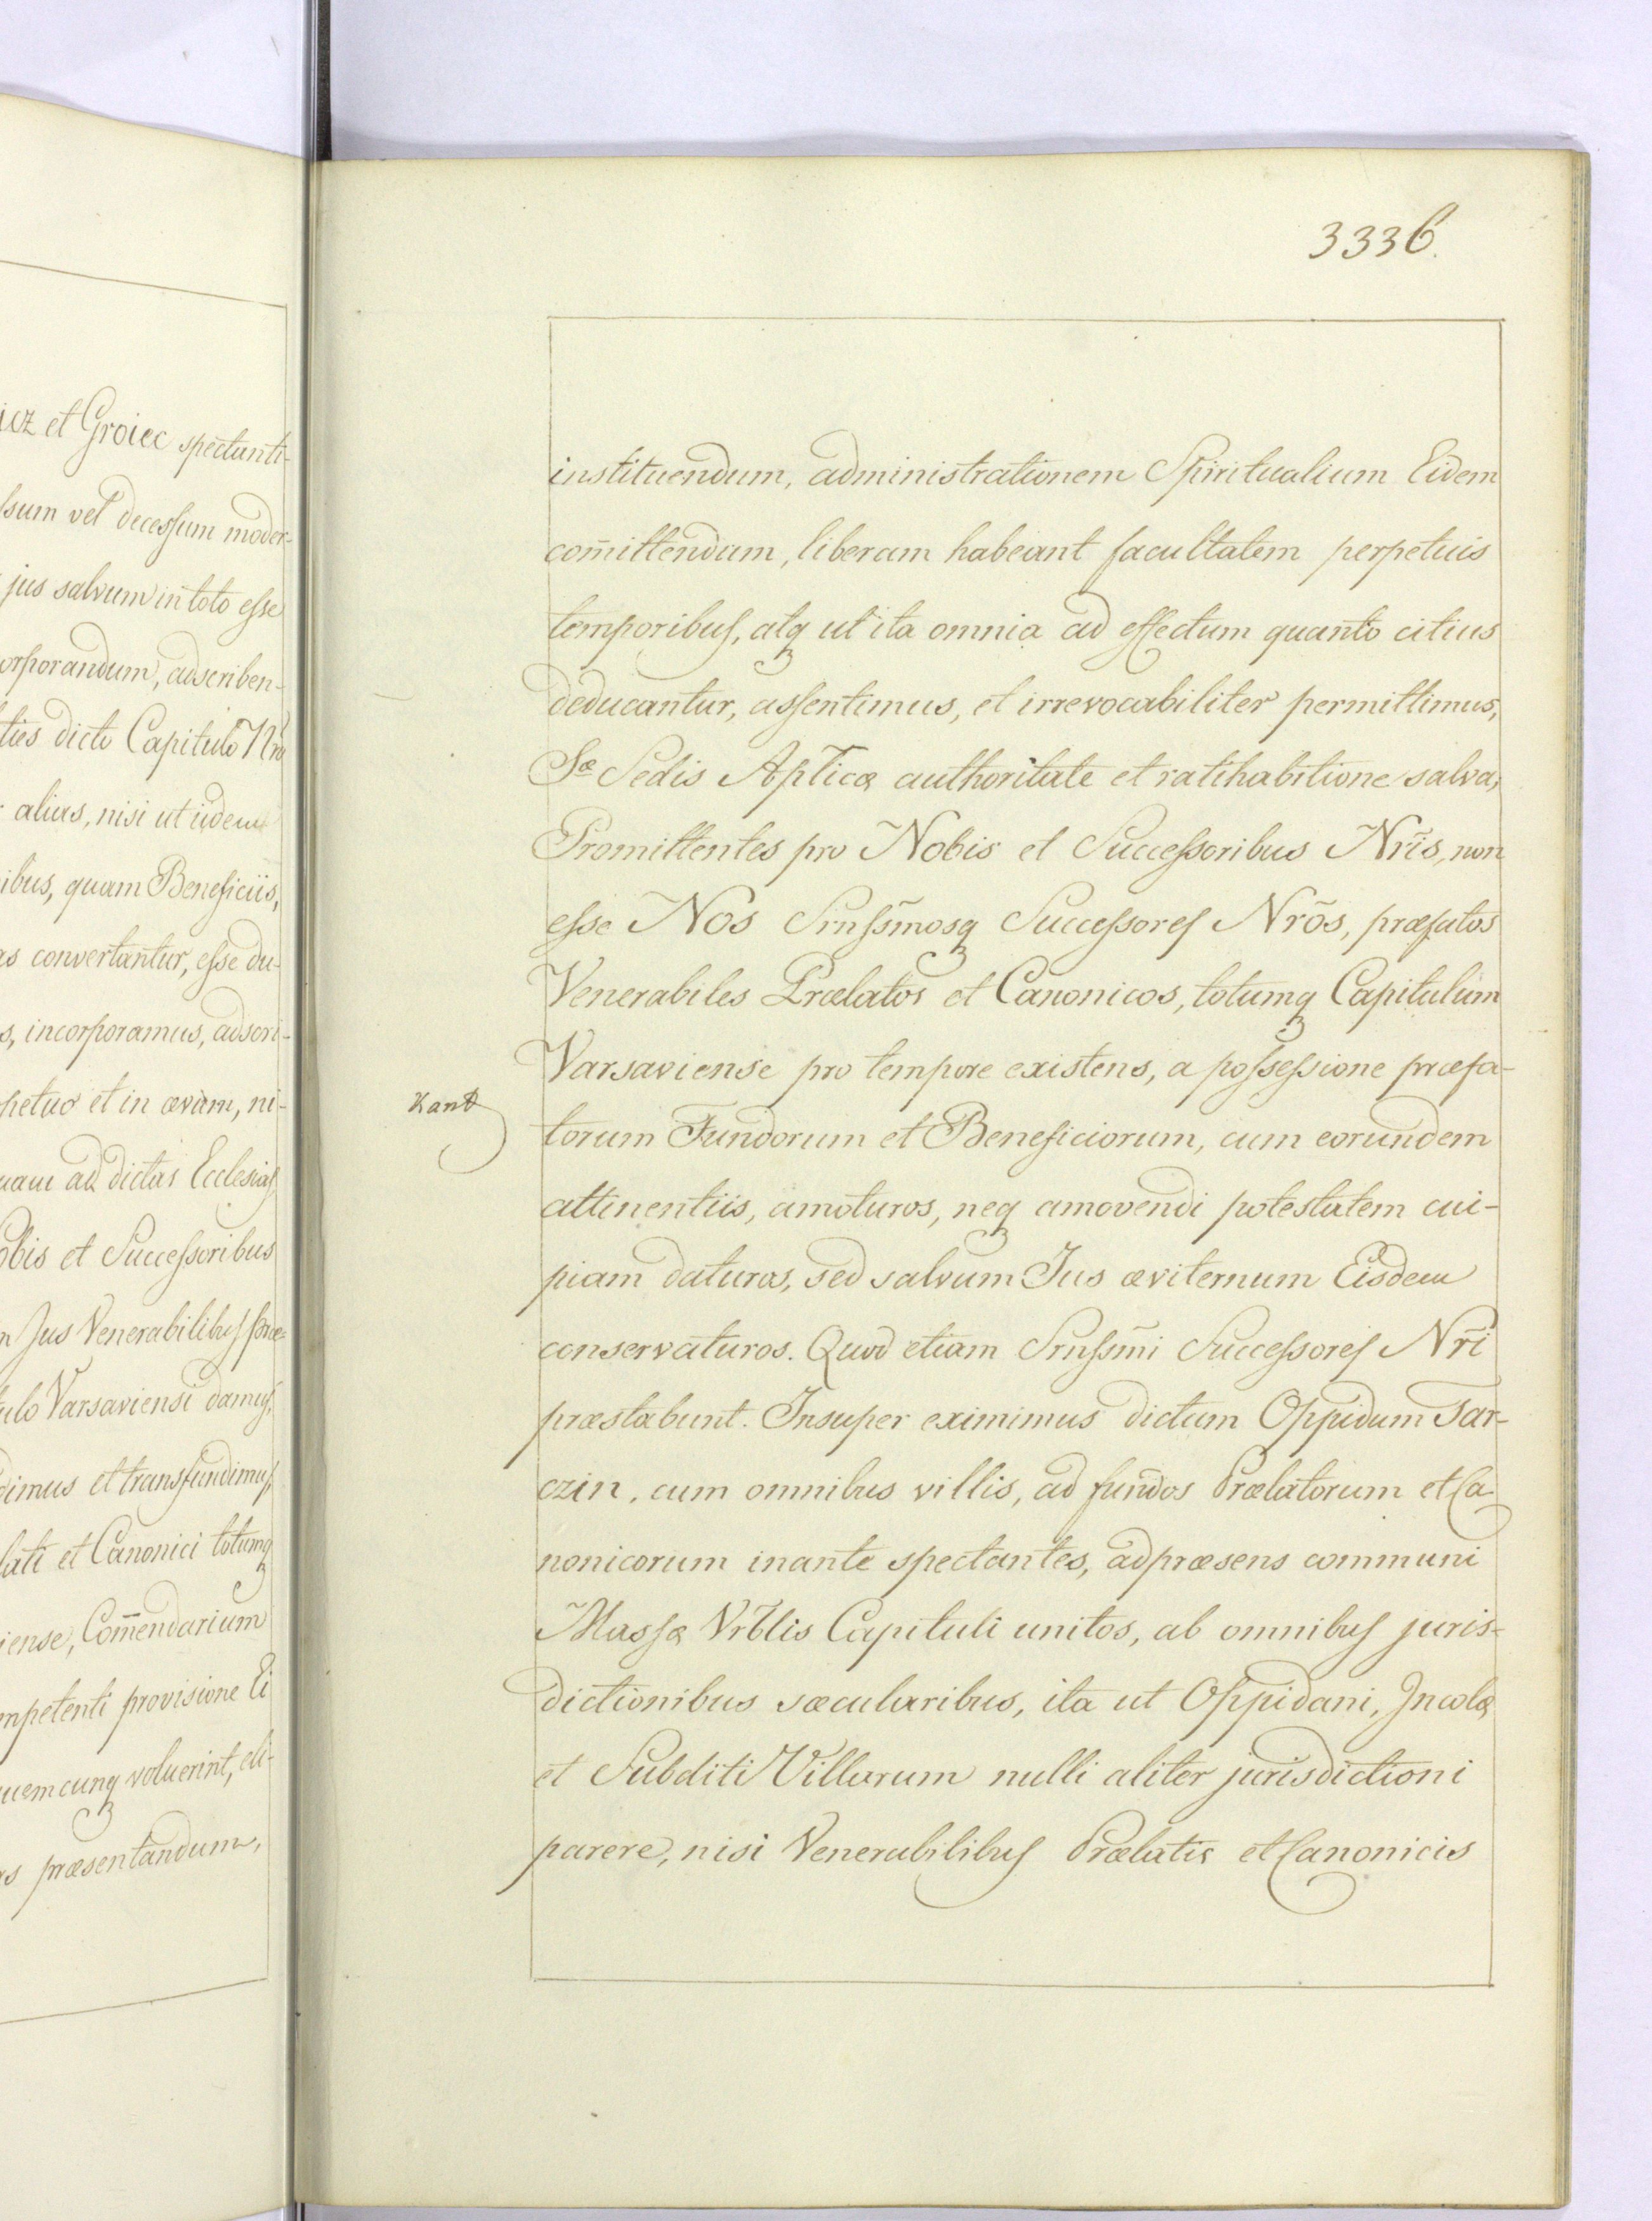 icz et Groiec spectanti-
ssum vel decessum moder-
jus salvum in toto esse
orporandum, adscriben-
ties dicto Capitulo Nro
alias, nisi ut iidem
ibus, quam Beneficiis,
as convertantur, esse du-
s, incorporamus, adscri-
petuo et in ævum, ni-
uam ad dictas Ecclesias
obis et Successoribus
n Jus Venerabilibus Præ-
ulo Varsaviensi damus,
dimus et transfundimus,
lati et Canonici totumq
iense, Com̄endarium
mpetenti provisione Ei
uemcunq voluerint, eli-
rs præsentandum,
3336.
instituendum, administrationem Spiritualium Eidem
com̄ittendam, liberam habeant facultatem perpetuis
temporibus, atq ut ita omnia ad effectum quanto citius
deducantur, assentimus, et irrevocabiliter permittimus,
Sæ Sedis Aplicæ authoritate et ratihabitione salva,
Promittentes pro Nobis et Successoribus Nr̃is, non
esse Nos Srnssm̃osq Successores Nrõs, præfatos
Venerabiles Prælatos et Canonicos, totumq Capitulum
Varsaviense pro tempore existens, a possessione præfa-
Kant
torum Fundorum et Beneficiorum, cum eorundem
attinentiis, amoturos, neq amovendi potestatem cui-
piam daturos, sed salvum Jus æviternum Eisdem
conservaturos. Quod etiam Srnssm̃i Successores Nrĩ
præstabunt. Insuper eximimus dictum Oppidum Tar-
czin, cum omnibus villis, ad fundos Prælatorum et Ca-
nonicorum inante spectantes, ad præsens communi
Massæ Vrblis Capituli unitos, ab omnibus juris-
dictionibus sæcularibus, ita ut Oppidani, Incolæ
et Subditi Villarum nulli aliter jurisdictioni
parere, nisi Venerabilibus Prælatis et Canonicis